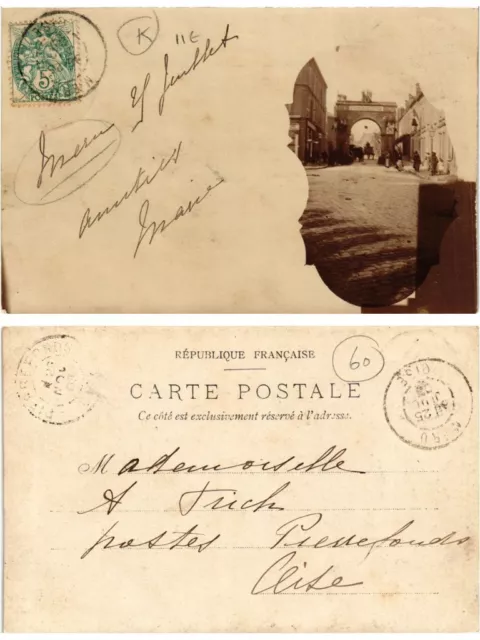 K
11E
5c
Meru 25 Juillet
amitiés
Marie
60
RÉPUBLIQUE FRANÇAISE
CARTE POSTALE
Ce côté est exclusivement réservé à l'adresse.
PIERREFONDS
OISE
Mademoiselle
A Frich
postes Pierrefonds
Oise